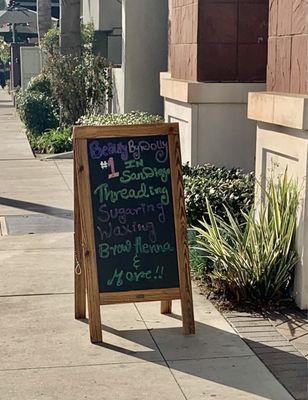 Beauty By Dolly
#1 In
San Diego
Threading
Sugaring
Waxing
Brow Henna
&
more!!